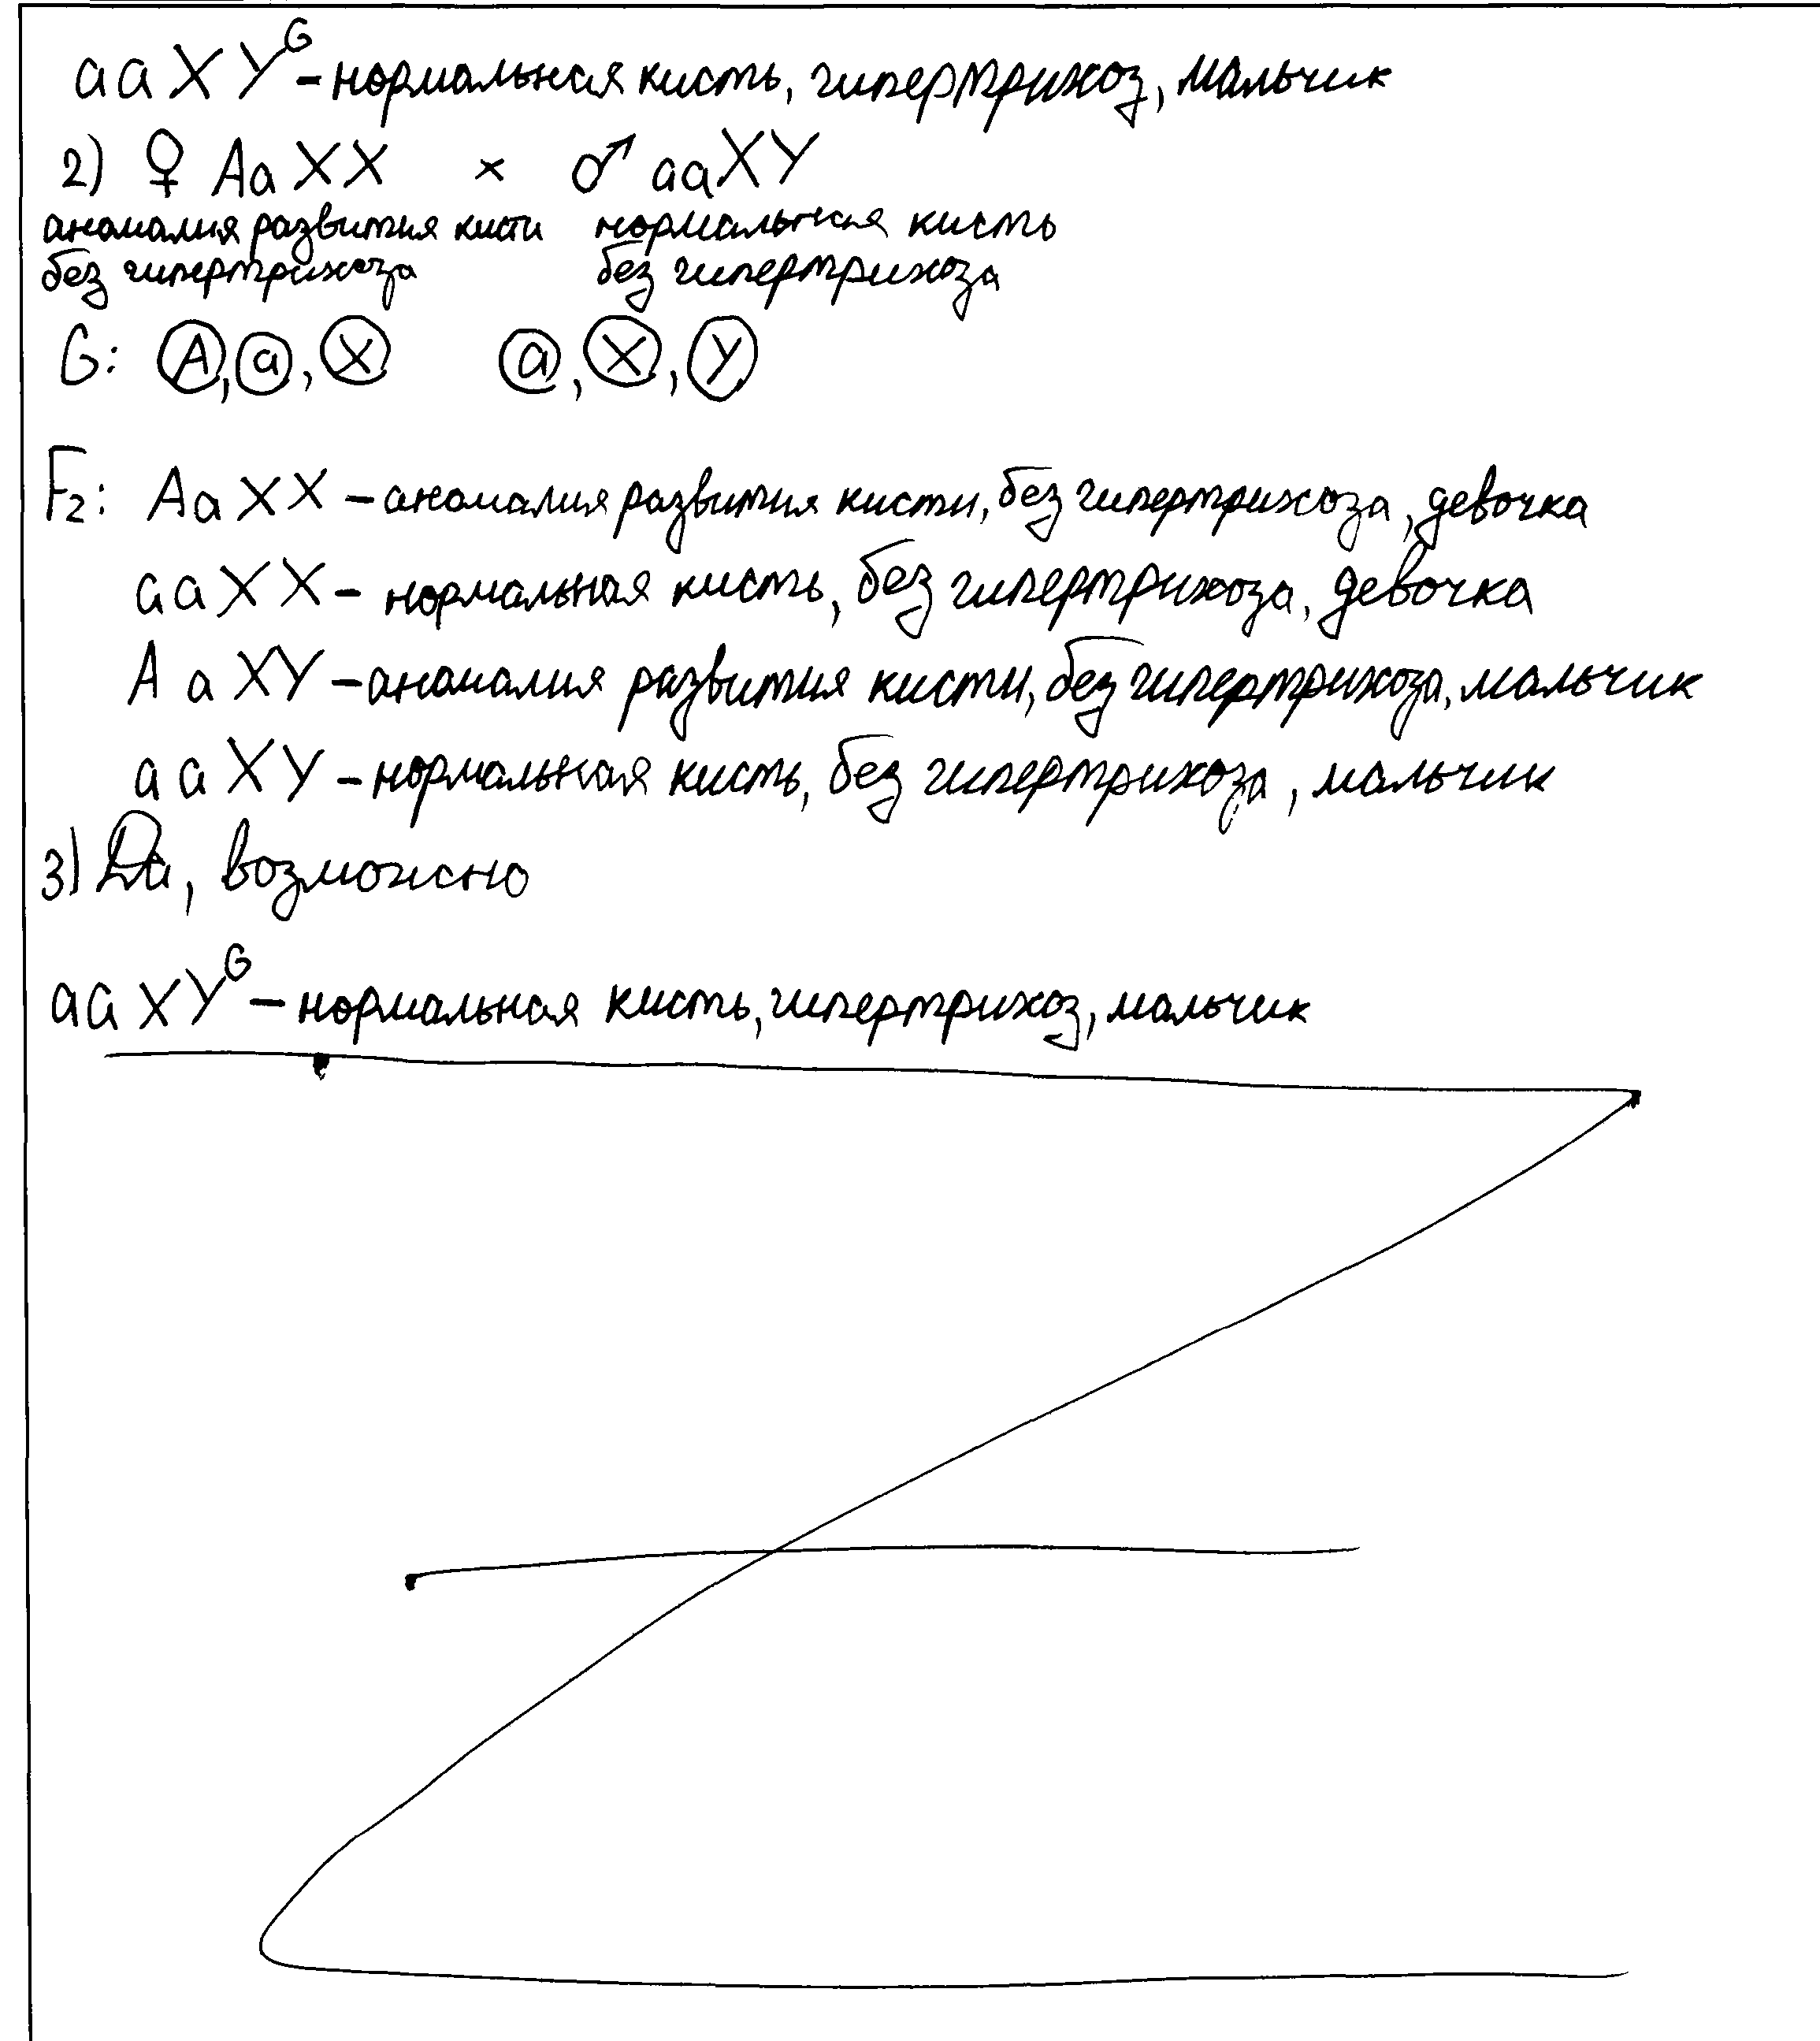 aaXYᴳ – нормальная кисть, гипертрихоз, мальчик
2) ♀ AaXX × ♂ aaXY
аномалия развития кисти нормальная кисть
без гипертрихоза без гипертрихоза
G: A, a, X a, X, Y
F₂: AaXX – аномалия развития кисти, без гипертрихоза, девочка
aaXX – нормальная кисть, без гипертрихоза, девочка
AaXY – аномалия развития кисти, без гипертрихоза, мальчик
aaXY – нормальная кисть, без гипертрихоза, мальчик
3) Да, возможно
aaXYᴳ – нормальная кисть, гипертрихоз, мальчик